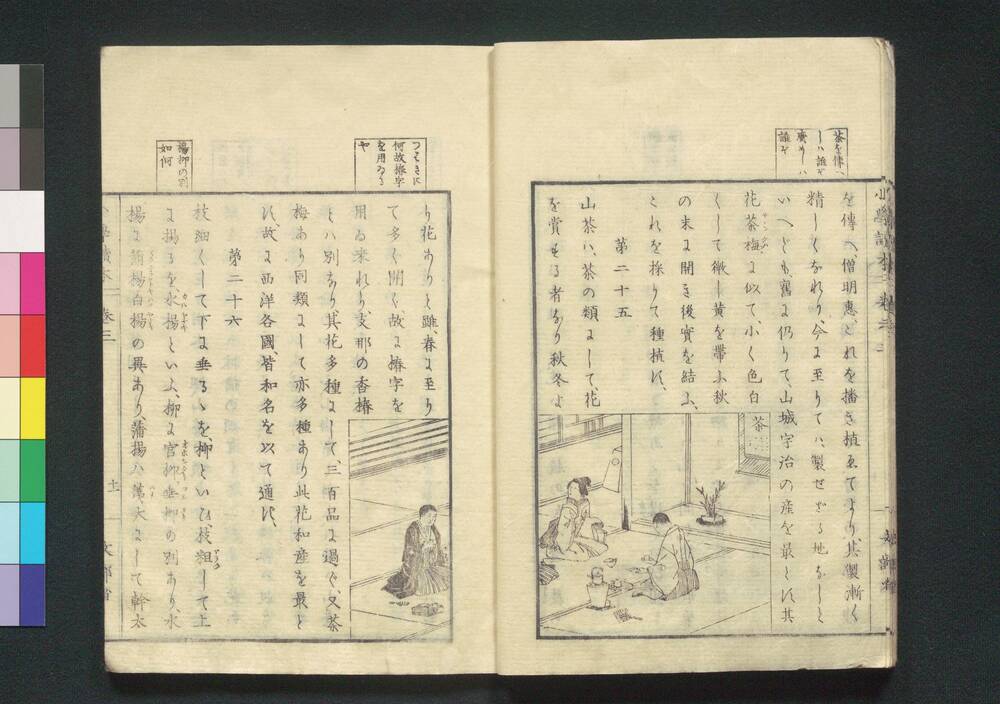 茶を傳へ
しハ誰ぞ
廣めしハ
誰ぞ
を傳へ、僧明惠、これを播き植ゑてより、其製漸く
精しくなれり、今に至りてハ、製せざる地なしと
いへども、舊に仍りて、山城宇治の産を最とす、其
花茶梅に似て、小く色白
くして微し黄を帶ふ秋
の末に開き後實を結ふ、
これを採りて種植す、
第二十五
山茶ハ、茶の類にして、花
を賞する者なり秋冬よ
茶
つばきに
何故椿字
を用ゐる
や
り花ありと雖、春に至り
て多く開く、故に椿字を
用ゐ来れり、支那の香椿
とハ別なり、其花多種にして、三百品に過ぐ、又茶
梅あり同類にして亦多種あり此花和産を最と
す故に西洋各國、皆和名を以て通す、
第二十六
楊柳の別
如何
枝細くして下に垂るゝを、柳といひ、枝粗くして上
に揚るを水楊といふ、柳に官柳、垂柳の別あり、水
楊に蒲楊白楊の異あり、蒲楊ハ、葉大にして幹太
十一
文部省